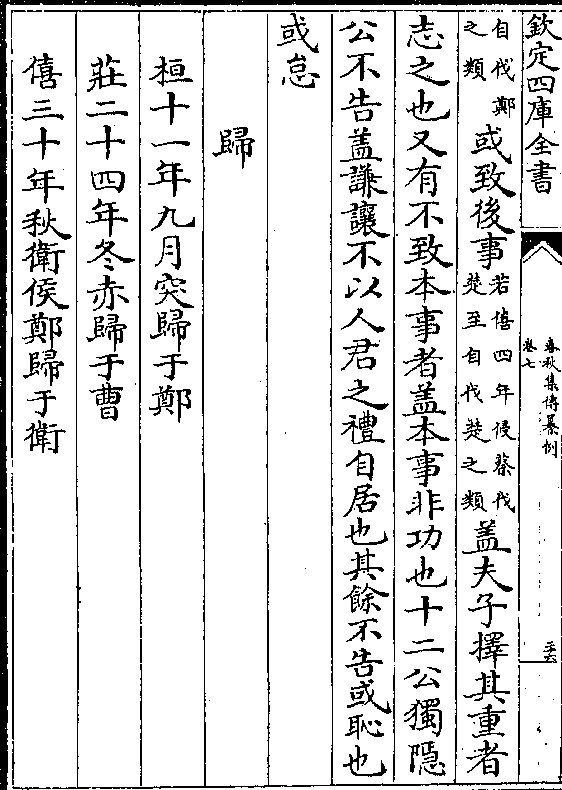 欽定四庫全書
春秋集傳纂例
卷七
自伐鄭之類或致後事若僖四年侵蔡伐楚至自伐楚之類盖夫子擇其重者
志之也又有不致本事者盖本事非功也十二公獨隱
公不告盖謙讓不以人君之禮自居也其餘不告或恥也
或怠
歸
桓十一年九月突歸于鄭
莊二十四年冬赤歸于曹
僖三十年秋衛侯鄭歸于衛